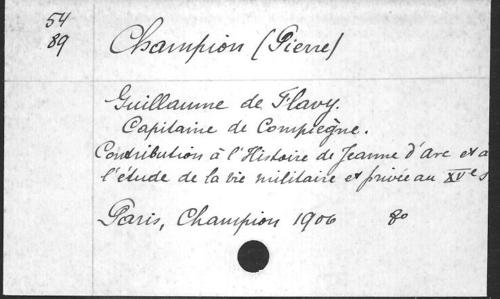 54
89
Champion (Pierre)
Guillaume de Flavy.
Capitaine de Compiègne.
Contribution à l'Histoire de Jeanne d'Arc et a
l'étude de la vie militaire et privée au XVe s
Paris, Champion 1906 8o